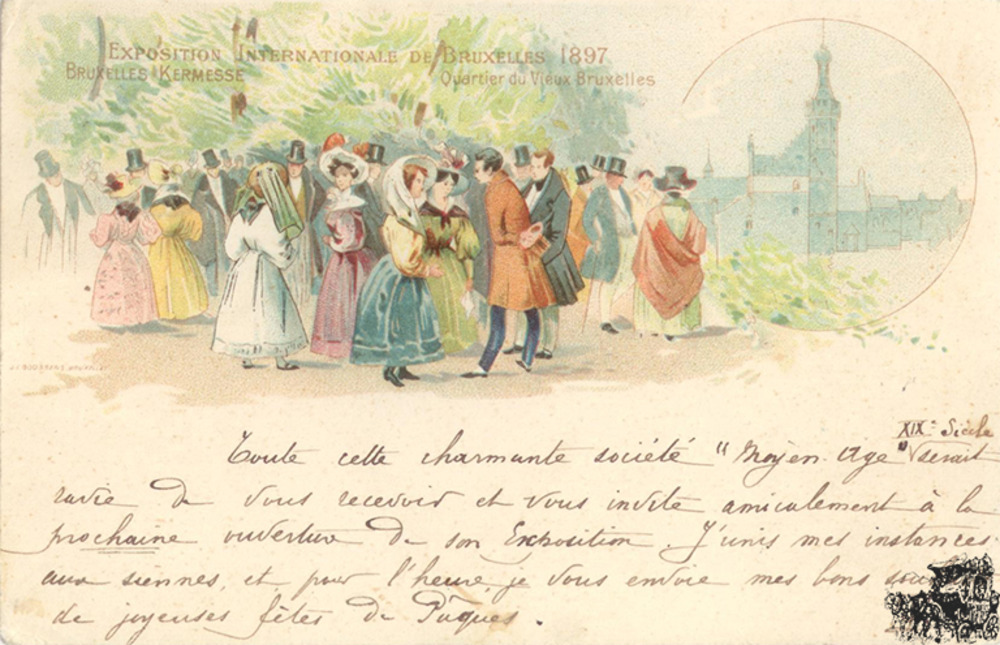 EXPOSITION INTERNATIONALE DE BRUXELLES 1897
BRUXELLES KERMESSE Quartier du Vieux Bruxelles
XIXe Siècle
Toute cette charmante société "Moyen-Age" serait
ravie de vous recevoir et vous invite amicalement à la
prochaine ouverture de son Exposition. J'unis mes instances
aux siennes, et pour l'heure, je vous envoie mes bons
de joyeuses fêtes de Pâques.